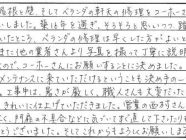 屋根と壁、そしてベランダの木の修理をコーホーさ
いしました。築15年を過ぎ、そろそろと思いつつ踏
いたところ、ベランダの修理は早くした方がよいと
また他の業者さんより写真を撮って丁寧に説明
ので、コーホーさんにお願いすることに決めました。
メンテナンスに来ていただけるということも決め手の一
、工事中は、暑さが厳しく、職人さんも大変だった
きれいに仕上げていただきました。営業の西村さん
く、門扉の不具合なども気がついて直して下さいました
とうございました。そしてこれからもよろしくお願いします